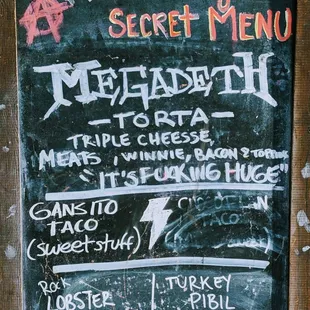 SECRET MENU
MEGADETH
-TORTA-
TRIPLE CHEESSE
MEATS, WINNIE, BACON & TOPPINGS
"IT'S FUCKING HUGE"
GANSITO
TACO
(sweet stuff)
TACO
Rock
LOBSTER
TURKEY
PIBIL